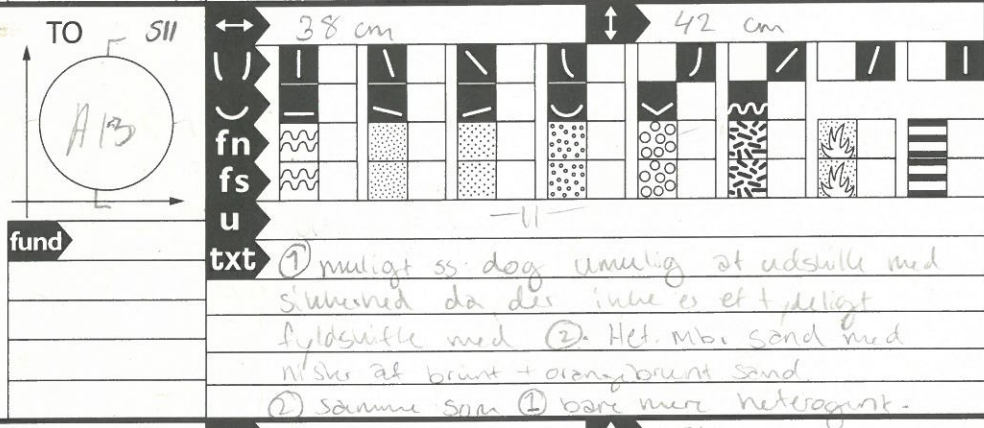 TO S11
38 cm
42 cm
A13
fn
fs
u
—11—
fund
txt
① muligt ss. dog umulig at udskille med
sikkerhed da der ikke er et tydeligt
fyldskifte med ②. Het. mb. sand med
nister af brunt + orangebrunt sand
② samme som ① bare mere heterogent.